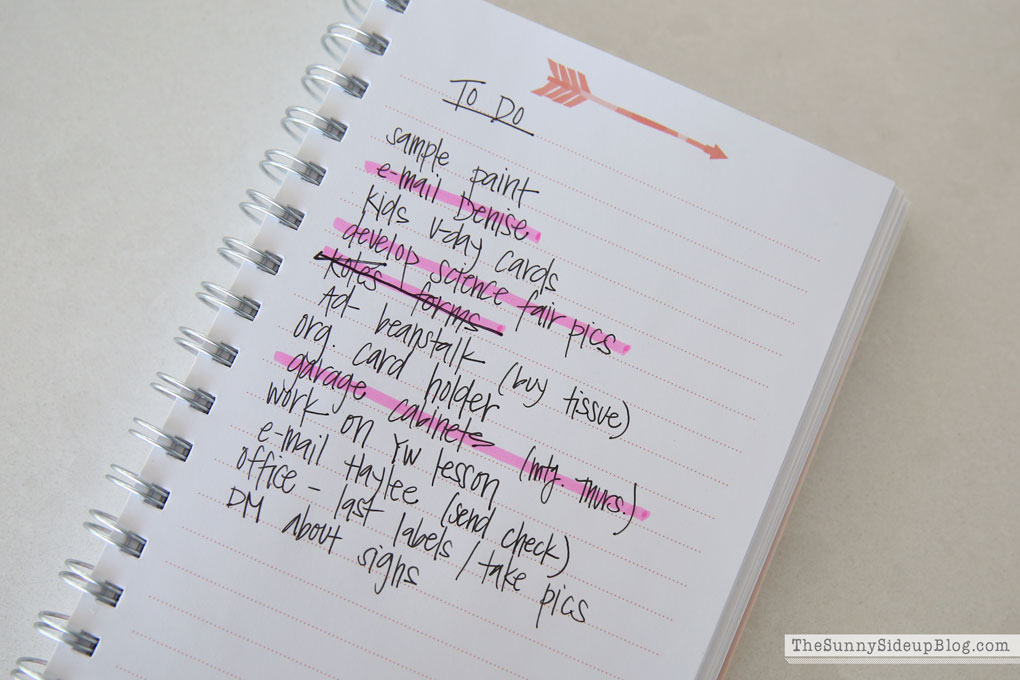 To Do
sample paint
e-mail Denise
kids v-day cards
develop science fair pics
Kotes forms
Ad- beanstalk (buy tissue)
org. card holder
garage cabinets (mtg. Thurs.)
work on YW lesson
e-mail Haylee (send check)
office - last labels / take pics
DM about signs
TheSunnySideupBlog.com